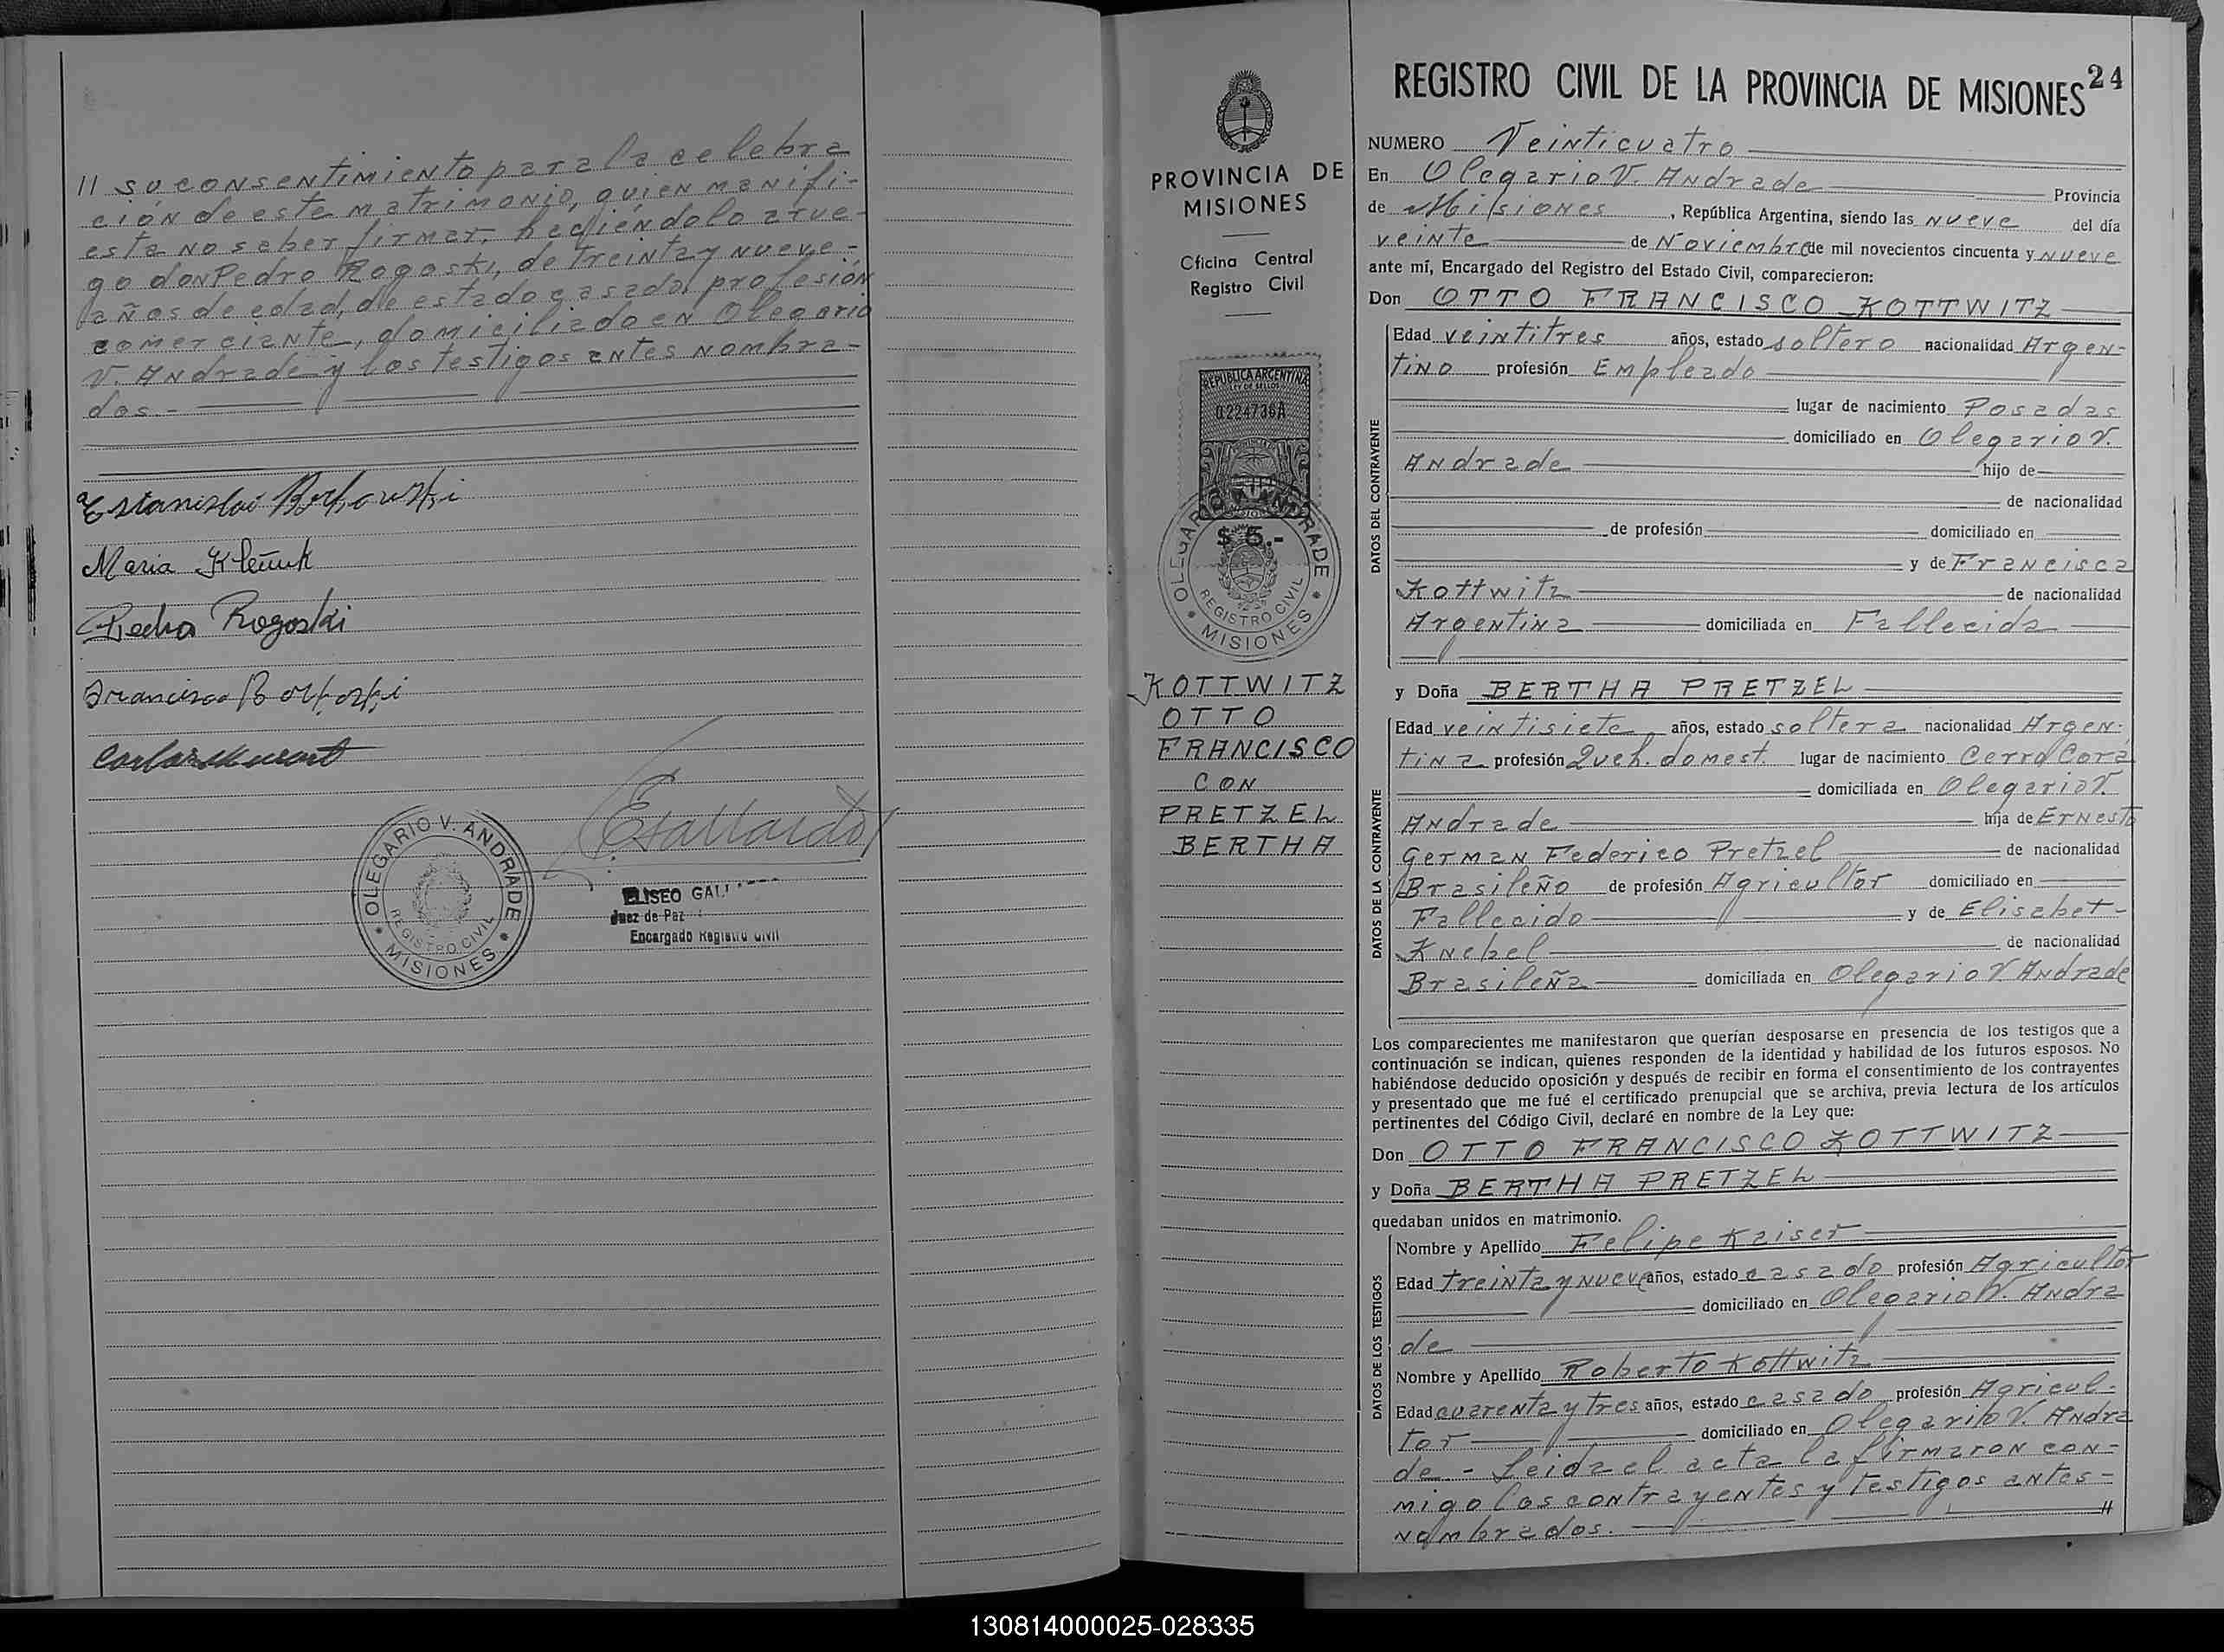 // su consentimiento para la celebra
ción de este matrimonio, quien manifi-
esta no saber firmar, haciéndolo a rue-
go don Pedro Rogoski, de treinta y nueve-
años de edad, de estado casado, profesión
comerciante, domiciliado en Olegario
V. Andrade y los testigos antes nombra-
dos.-
Maria
Pedro Rogoski
Francisco
OLEGARIO V. ANDRADE
REGISTRO CIVIL
* MISIONES *
ELISEO
Juez de Paz
Encargado Registro Civil
PROVINCIA DE
MISIONES
Oficina Central
Registro Civil
REPUBLICA ARGENTINA
LEY DE SELLOS
0224736A
$ 5.-
OLEGARIO V. ANDRADE
REGISTRO CIVIL
* MISIONES *
KOTTWITZ
OTTO
FRANCISCO
CON
PRETZEL
BERTHA
REGISTRO CIVIL DE LA PROVINCIA DE MISIONES 24
NUMERO Veinticuatro
En Olegario V. Andrade Provincia
de Misiones, República Argentina, siendo las nueve del día
veinte de Noviembre de mil novecientos cincuenta y nueve
ante mí, Encargado del Registro del Estado Civil, comparecieron:
Don OTTO FRANCISCO KOTTWITZ
DATOS DEL CONTRAYENTE
Edad veintitres años, estado soltero nacionalidad Argen-
tino profesión Empleado
lugar de nacimiento Posadas
domiciliado en Olegario V.
Andrade hijo de
de nacionalidad
de profesión domiciliado en
y de Francisca
Kottwitz de nacionalidad
Argentina domiciliada en Fallecida
y Doña BERTHA PRETZEL
DATOS DE LA CONTRAYENTE
Edad veintisiete años, estado soltera nacionalidad Argen-
tina profesión Queh. domest. lugar de nacimiento Cerro Corá
domiciliada en Olegario V.
Andrade hija de Ernesto
German Federico Pretzel de nacionalidad
Brasileño de profesión Agricultor domiciliado en
Fallecido y de Elisabet-
Knebel de nacionalidad
Brasileña domiciliada en Olegario V. Andrade
Los comparecientes me manifestaron que querían desposarse en presencia de los testigos que a
continuación se indican, quienes responden de la identidad y habilidad de los futuros esposos. No
habiéndose deducido oposición y después de recibir en forma el consentimiento de los contrayentes
y presentado que me fué el certificado prenupcial que se archiva, previa lectura de los artículos
pertinentes del Código Civil, declaré en nombre de la Ley que:
Don OTTO FRANCISCO KOTTWITZ
y Doña BERTHA PRETZEL
quedaban unidos en matrimonio.
DATOS DE LOS TESTIGOS
Nombre y Apellido Felipe Kaiser
Edad treinta y nueve años, estado casado profesión Agricultor
domiciliado en Olegario V. Andra
de
Nombre y Apellido Roberto Kottwitz
Edad cuarenta y tres años, estado casado profesión Agricul-
tor domiciliado en Olegario V. Andra
de.- Leida el acta la firmaron con-
migo los contrayentes y testigos antes-
nombrados. //
130814000025-028335